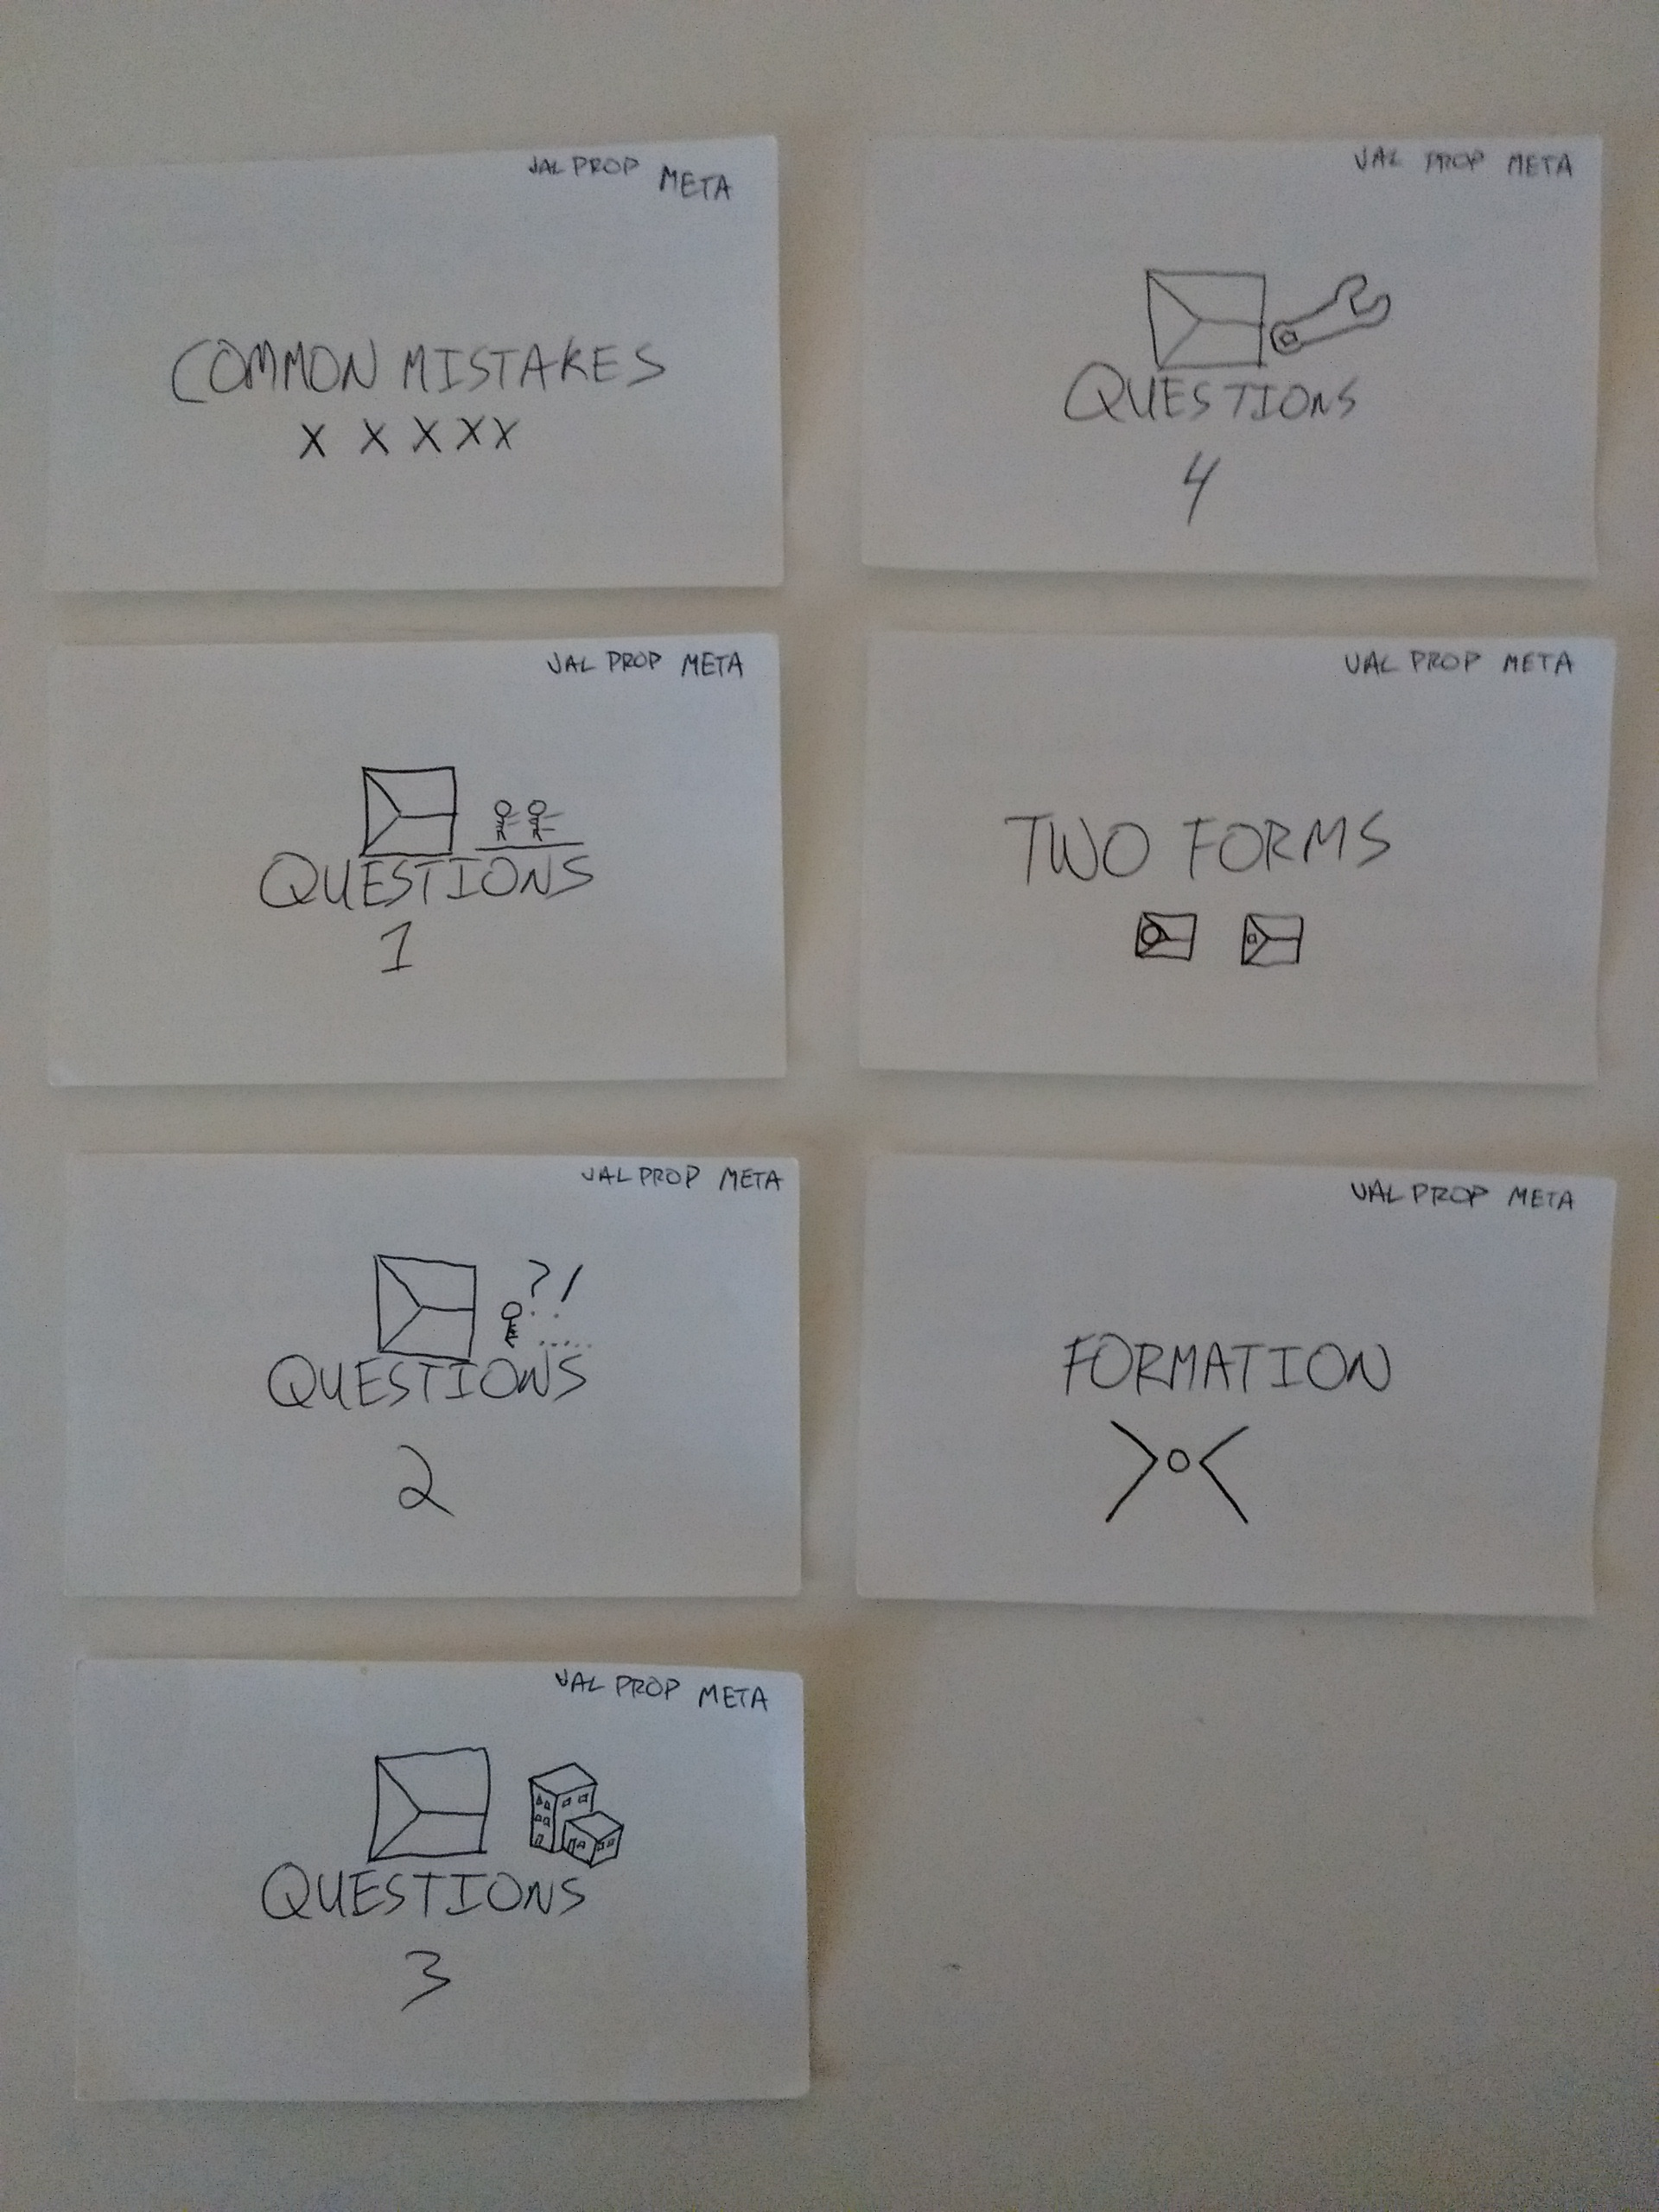 VAL PROP META
COMMON MISTAKES
X X X X X
VAL PROP META
QUESTIONS
1
VAL PROP META
?!
QUESTIONS
2
VAL PROP META
QUESTIONS
3
VAL PROP META
QUESTIONS
4
VAL PROP META
TWO FORMS
VAL PROP META
FORMATION